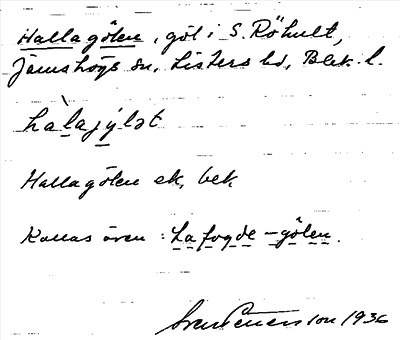 Hallagölen, göl i S. Röhult,
Jämshögs sn, Listers hd, Blek. l.
halajýlət
Hallagölen ek, bek
Kallas även: Lafogde-gölen.
Sven Benson 1936